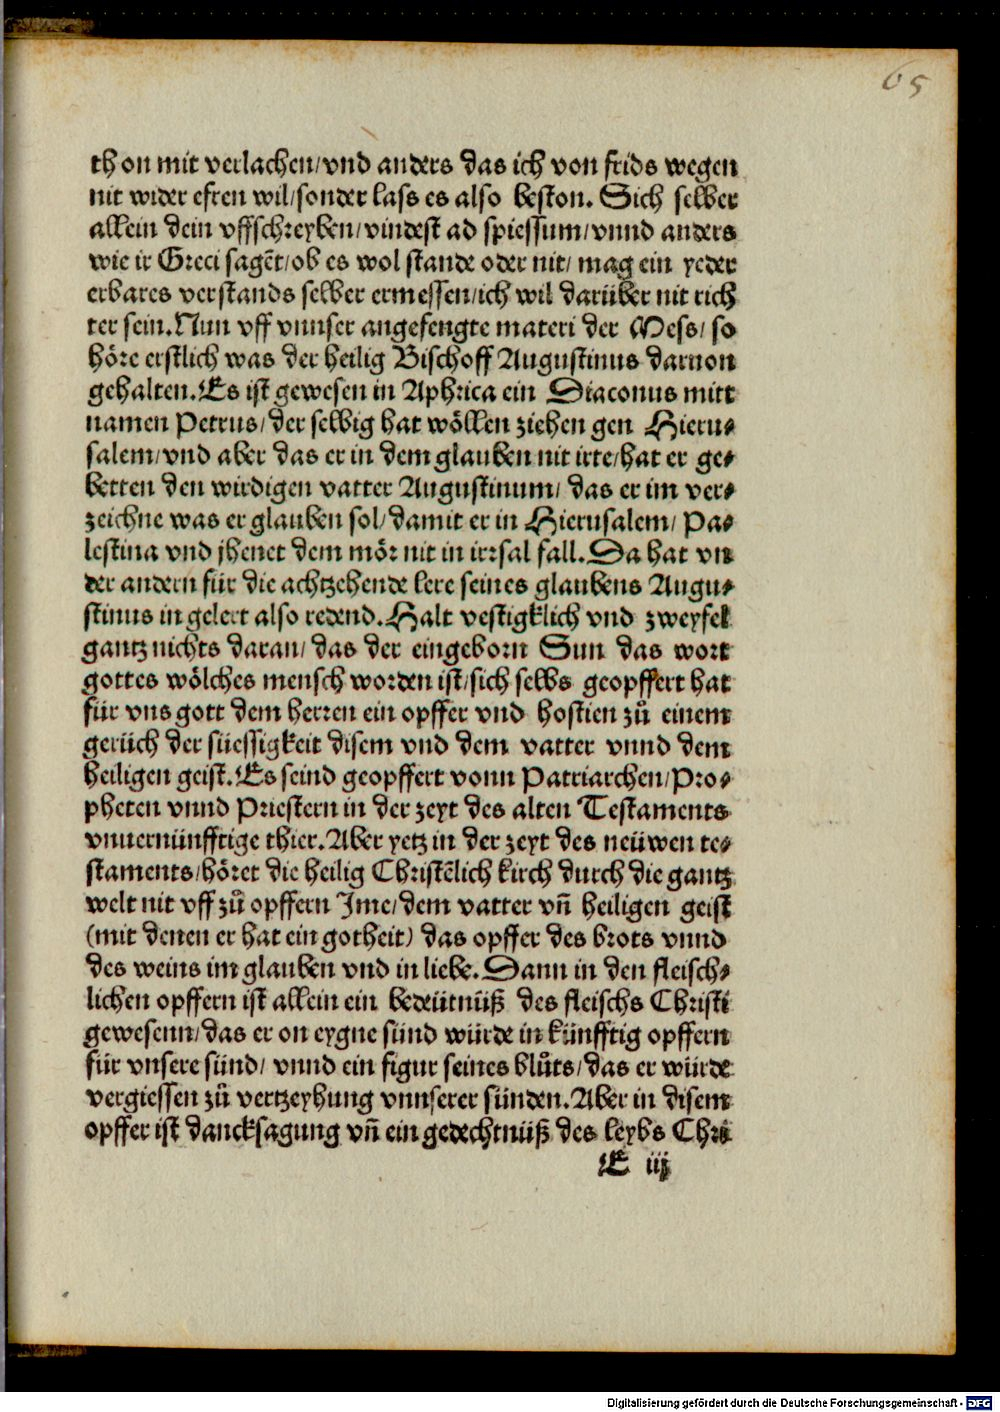 65
thon mit verlachen/vnd anders das ich von frids wegen
nit wider efren wil/sonder lass es also beston. Sich selber
allein dein vffschreyben/vindest ad spiessum/vnnd anders
wie ir Greci sagẽt/ob es wol stande oder nit/ mag ein yeder
erbares verstands selber ermessen/ich wil darüber nit rich
ter sein. Nun vff vnnser angefengte materi der Mess/ so
höre erstlich was der heilig Bischoff Augustinus daruon
gehalten. Es ist gewesen in Aphrica ein Diaconus mitt
namen Petrus/ der selbig hat wöllen ziehen gen Hieru⸗
salem/vnd aber das er in dem glauben nit irte/hat er ge⸗
betten den wirdigen vatter Augustinum/ das er im ver⸗
zeichne was er glauben sol/damit er in Hierusalem/ Pa⸗
lestina vnd jhenet dem mör nit in irrsal fall. Da hat vn
der andern für die achtzehende lere seines glaubens Augu⸗
stinus in gelert also redend. Halt vestigklich vnd zweyfel
gantz nichts daran/ das der eingeborn Sun das wort
gottes wölches mensch worden ist/sich selbs geopffert hat
für vns gott dem herren ein opffer vnd hostien zů einem
gerüch der süessigkeit disem vnd dem vatter vnnd dem
heiligen geist. Es seind geopffert vonn Patriarchen/Pro⸗
pheten vnnd Priestern in der zeyt des alten Testaments
vnuernünfftige thier. Aber yetz in der zeyt des neüwen te⸗
staments/höret die heilig Christẽlich kirch durch die gantz
welt nit vff zů opffern Ime/dem vatter vñ heiligen geist
(mit denen er hat ein gotheit) das opffer des brots vnnd
des weins im glauben vnd in liebe. Dann in den fleisch⸗
lichen opffern ist allein ein bedeütnüß des fleischs Christi
gewesenn/das er on eygne sünd würde in künfftig opffern
für vnsere sünd/ vnnd ein figur seines blůts/das er würde
vergiessen zů vertzeyhung vnnserer sünden. Aber in disem
opffer ist dancksagung vñ ein gedechtnüß des leybs Chri
E iij
Digitalisierung gefördert durch die Deutsche Forschungsgemeinschaft - DFG